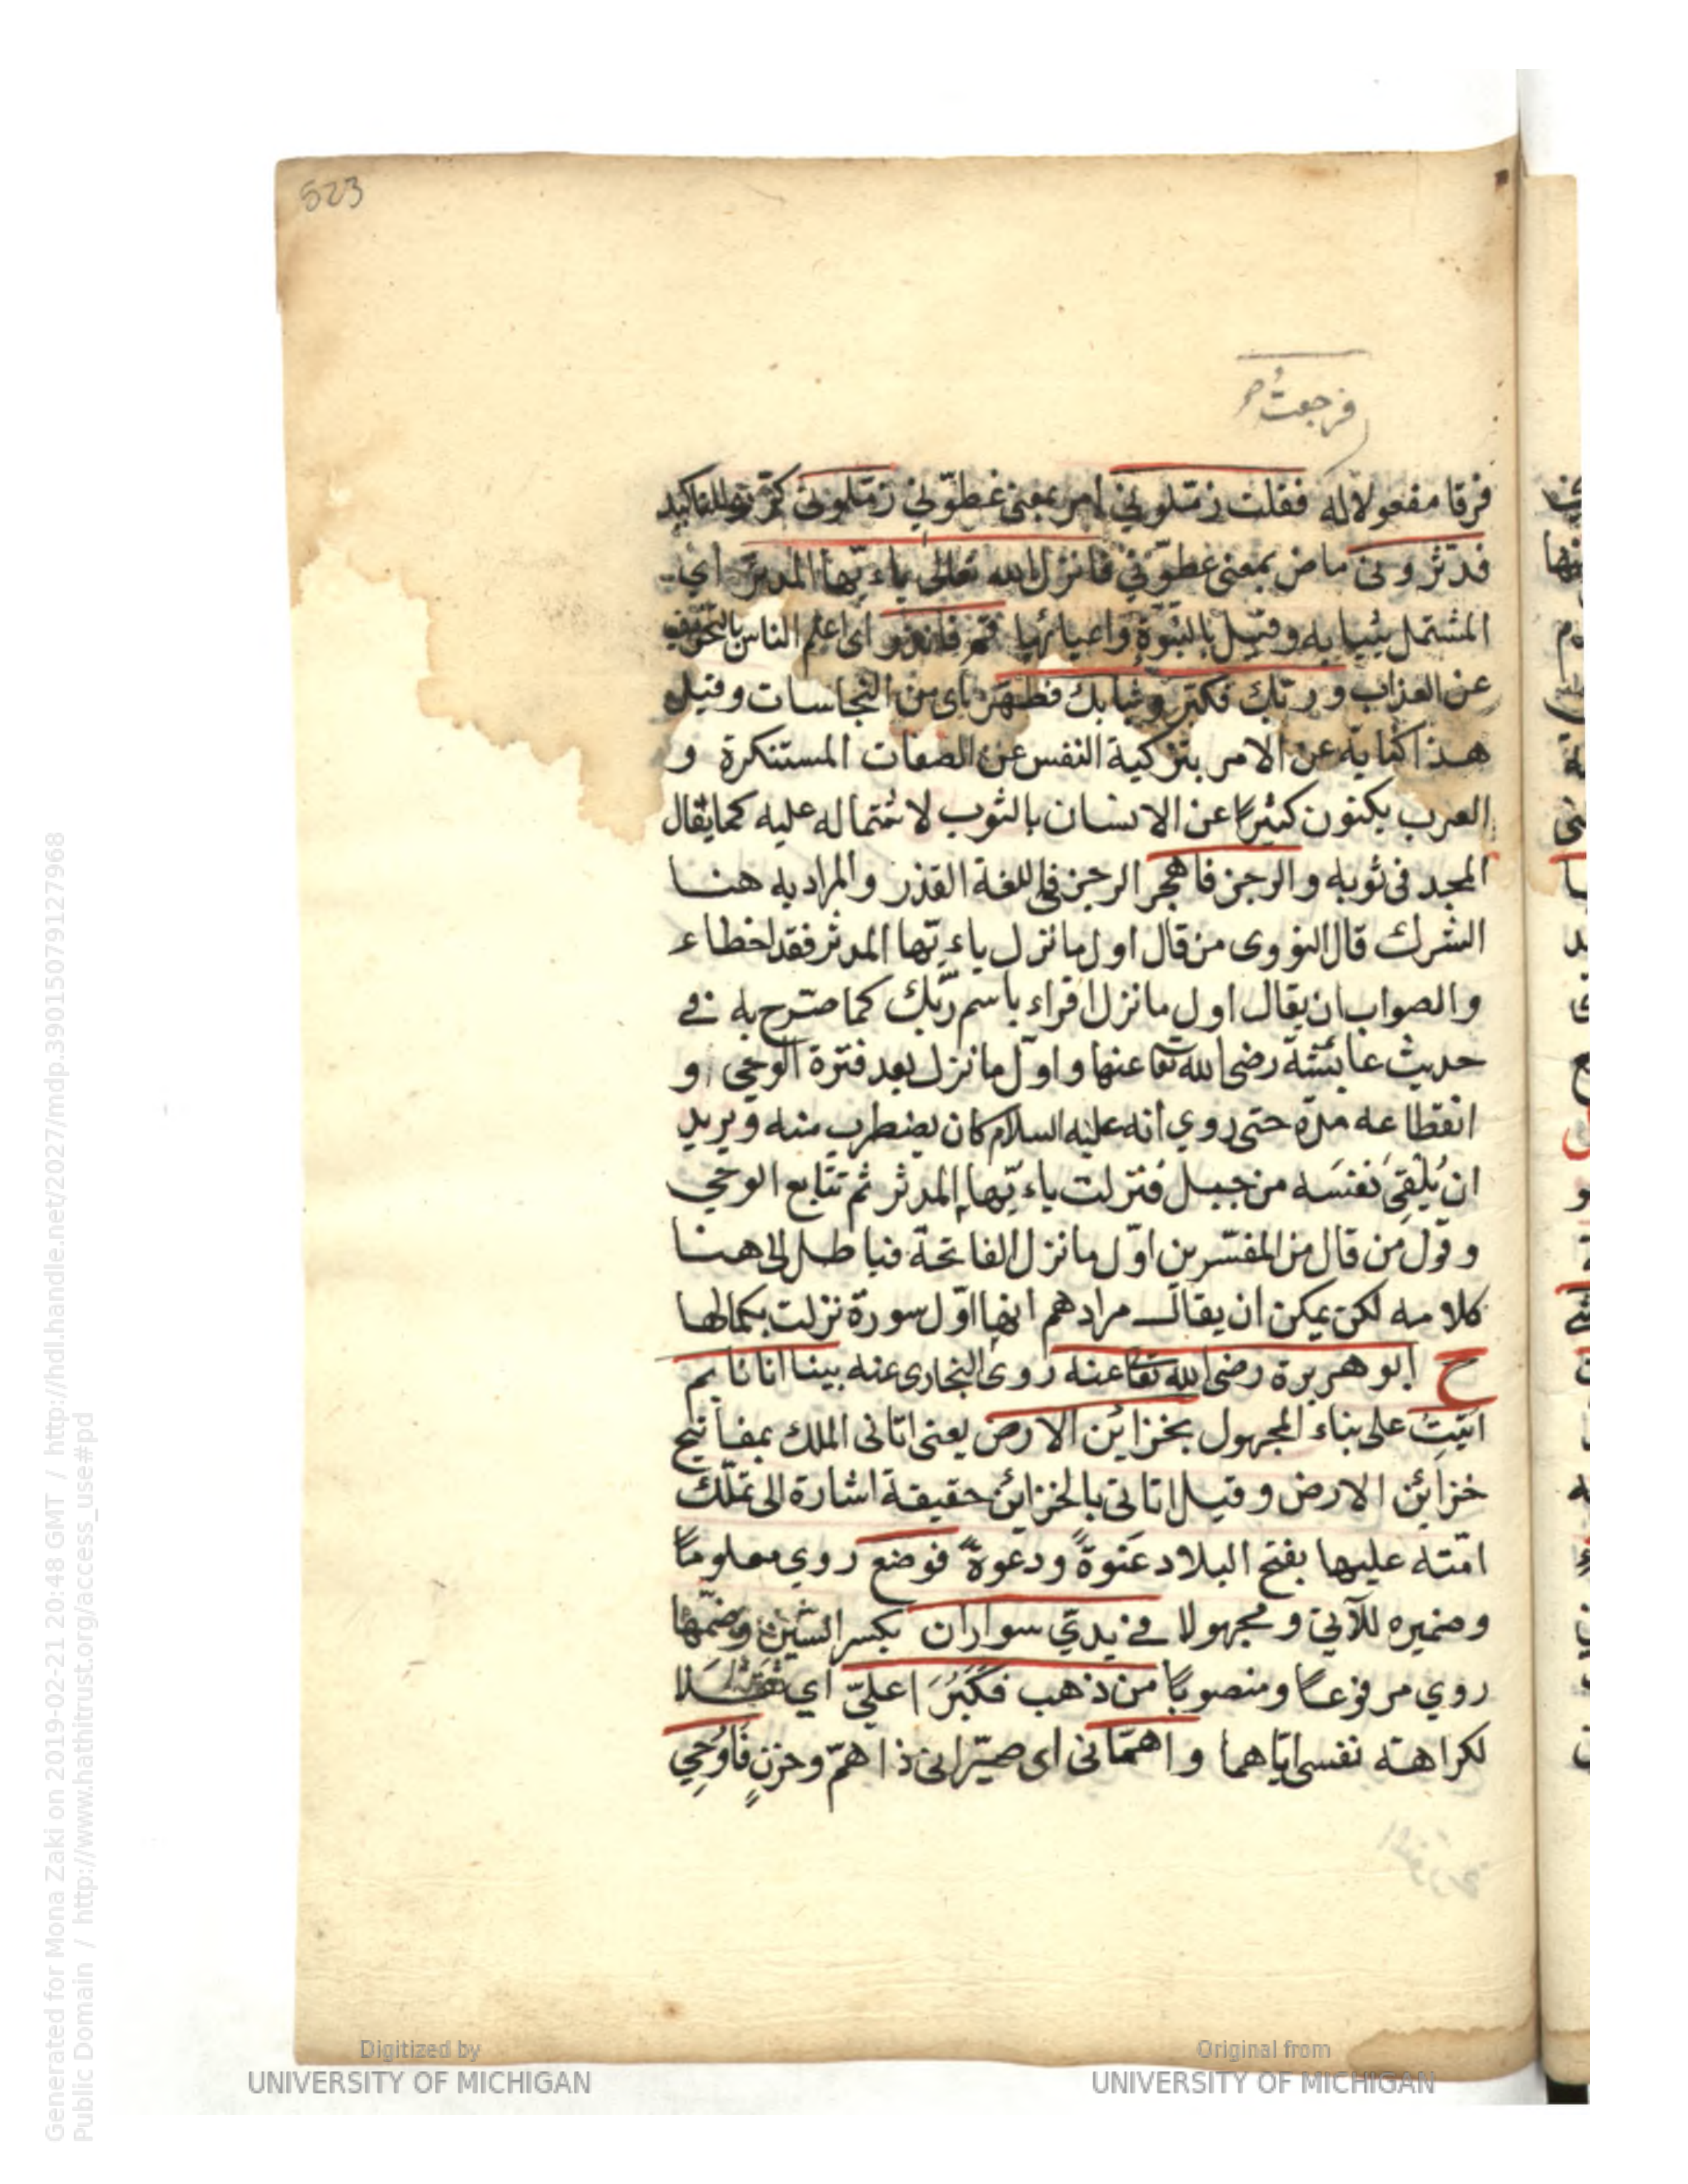 523
فرجعتُ
فرقا مفعولا له فقلت زمّلوني امر بمعنى غطوّني زمّلوني كرّر للتاكيد
فدثروني ماض بمعنى غطوّني فانزل الله تعالى ياءيّها المدثر اي
المشتمل بثيابه وقيل بالنبوة واعبائها قم فانذر اى اعلم الناس بالتخويف
عن العذاب وربّك فكبّر وثيابك فطهّر اى من النجاسات وقيل
هذا كناية عن الامر بتزكية النفس عن الصفات المستنكرة و
العرب يكنون كثيرًا عن الانسان بالثوب لاشتماله عليه كما يقال
المجد فى ثوبه والرجز فاهجر الرجز فى اللغة القذر والمراد به هنا
الشرك قال النووى من قال اول ما نزل ياءيّها المدثر فقد اخطاء
والصواب ان يقال اول ما نزل اقراء باسم ربّك كما صرّح به في
حديث عائشة رضى الله تعا عنها واوّل ما نزل بعد فترة الوحي و
انقطاعه مدّة حتى روي انه عليه السلام كان يضطرب منه ويريد
ان يُلقِيَ نفسَه من جبل فنزلت ياءيّها المدثر ثم تتابع الوحي
وقول من قال من المفسّرين اوّل ما نزل الفاتحة فباطل الى هنا
كلامه لكن يمكن ان يقال مرادهم انها اوّل سورة نزلت بكمالها
خ ابو هريرة رضى الله تعا عنه روى البخارى عنه بينا انا نايم
اُتيتُ على بناء المجهول بخزاين الارض يعنى اتانى الملك بمفاتيح
خزائن الارض وقيل اتاني بالخزائن حقيقة اشارة الى تملّك
امّته عليها بفتح البلاد عنوةً ودعوةً فوضع روي معلومًا
وضميره للآتي ومجهولا في يديّ سواران بكسر السّين وضمّها
روي مرفوعًا ومنصوبًا من ذهب فكَبُرَا عليّ اي ثقلا
لكراهته نفسى ايّاهما واهمّانى اى صيّرانى ذا همّ وحزنٍ فاُوحِي
Digitized by
UNIVERSITY OF MICHIGAN
Original from
UNIVERSITY OF MICHIGAN
Generated for Mona Zaki on 2019-02-21 20:48 GMT / http://hdl.handle.net/2027/mdp.39015079127968
Public Domain / http://www.hathitrust.org/access_use#pd